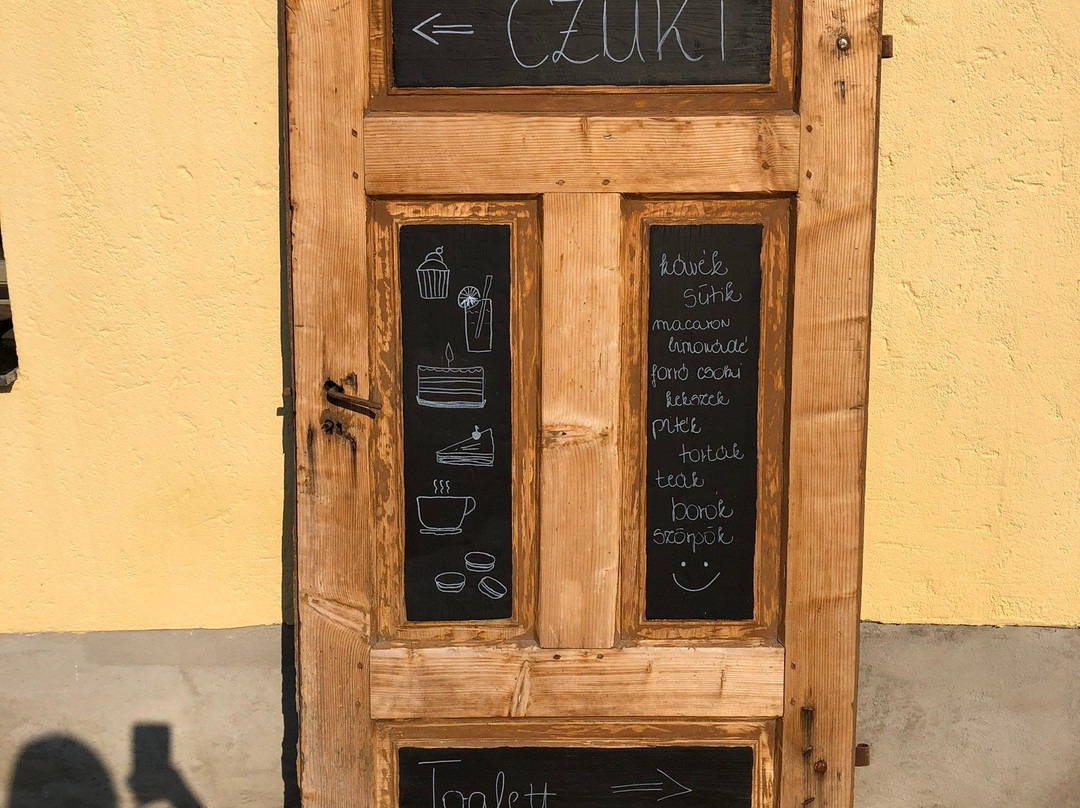 ⇐ CZUKI
kávék
sütik
macaron
limonádé
forró csoki
kekszek
piték
torták
teák
borok
szörpök
Toalett ⇒